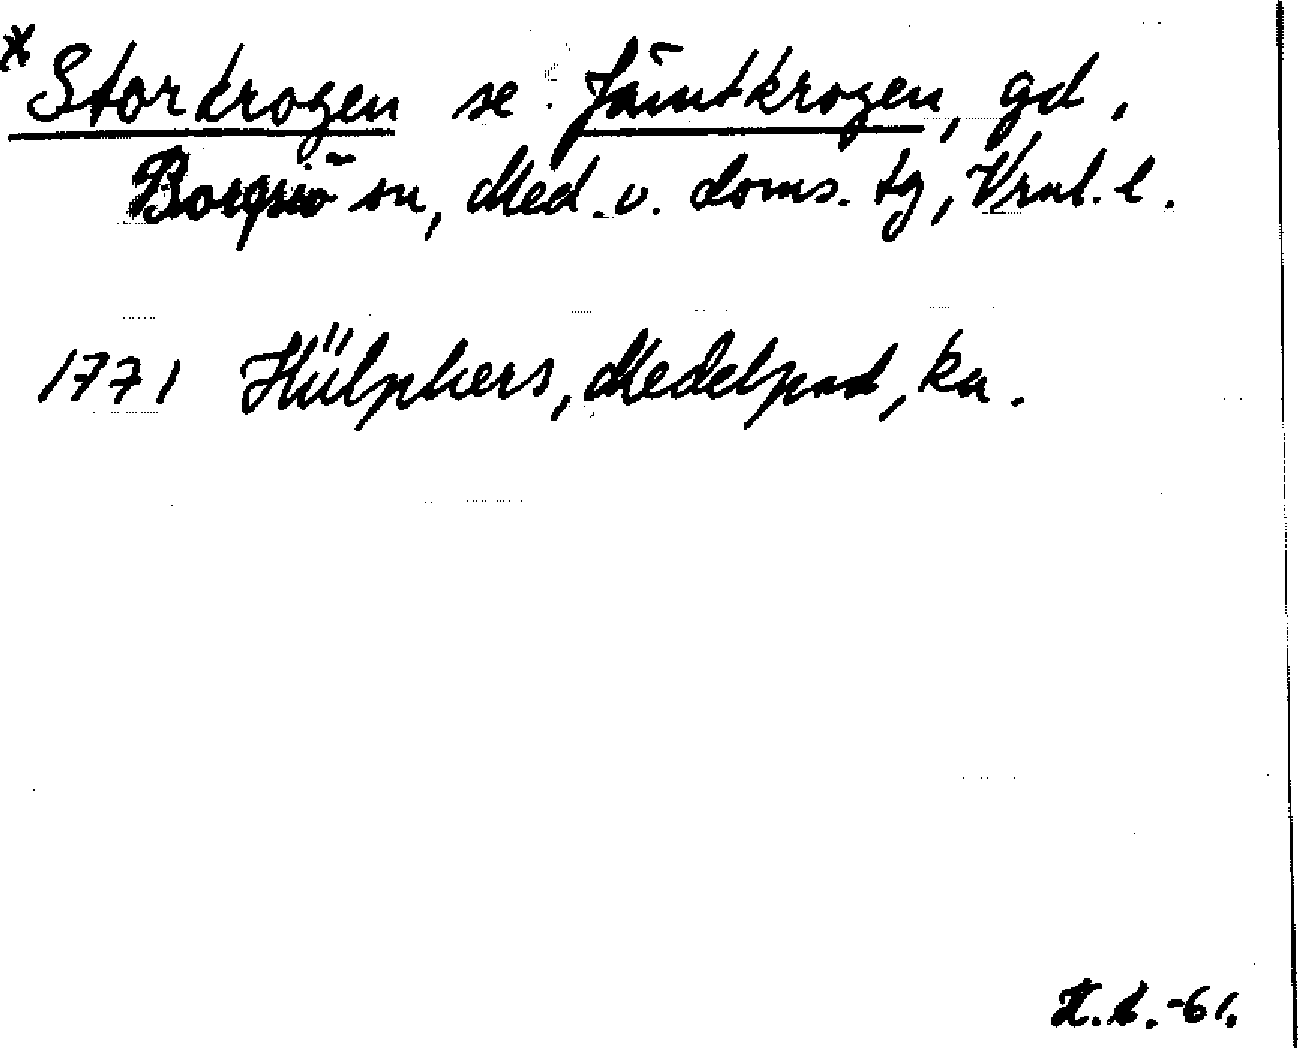 * Storkrogen se Jämtkrogen, gd,
Borgsjö sn, Med. v. doms. tg, Vrnl. l.
1771 Hülphers, Medelpad, ka.
-61.